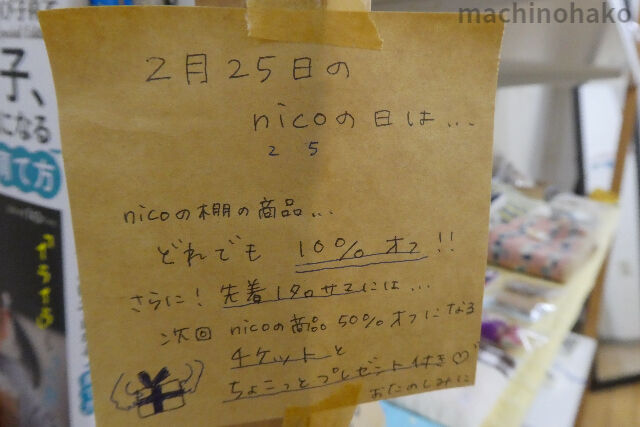 machinohako
2月25日の
nicoの日は...
2 5
nicoの棚の商品...
どれでも 10% オフ!!
さらに! 先着1名サマには...
次回 nicoの商品50%オフになる
チケットと
ちょこっとプレゼント付き♡
おたのしみに
子、
になる
育て方